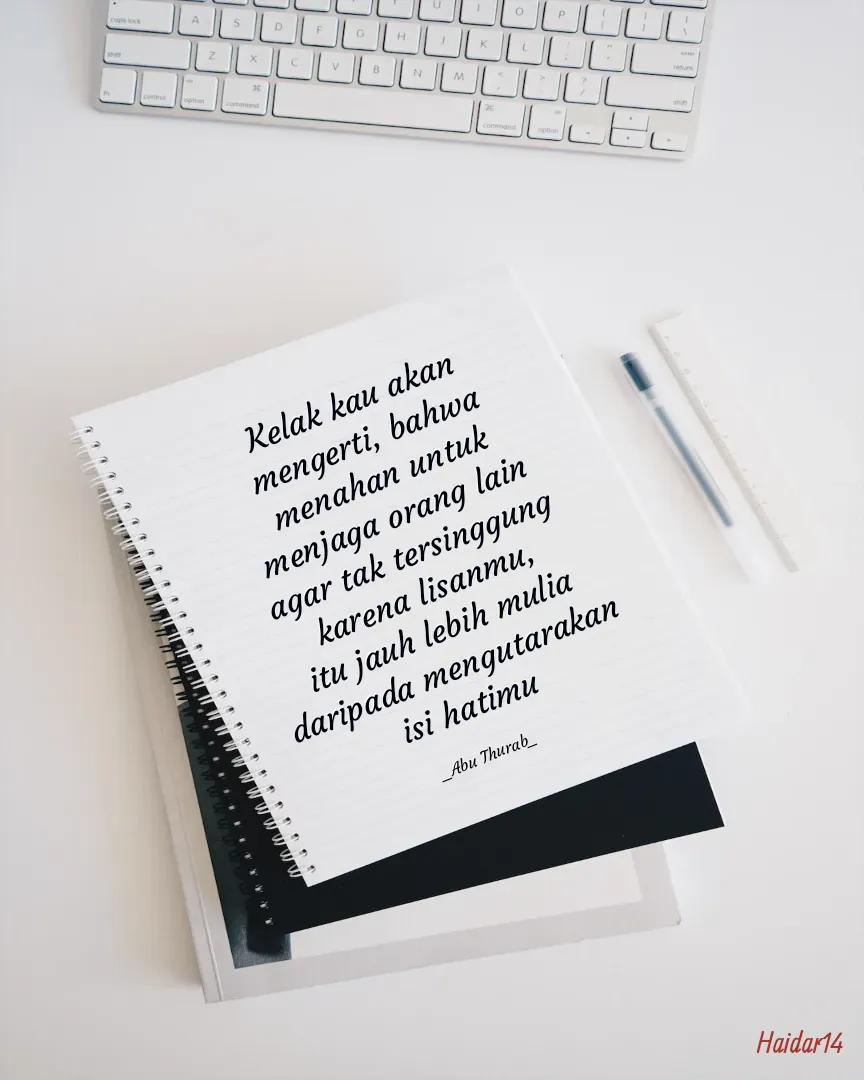 caps lock A S D F G H J K L : ; " ' enter return
shift Z X C V B N M < , > . ? / shift
fn control option command command option
Kelak kau akan
mengerti, bahwa
menahan untuk
menjaga orang lain
agar tak tersinggung
karena lisanmu,
itu jauh lebih mulia
daripada mengutarakan
isi hatimu
_Abu Thurab_
Haidar14